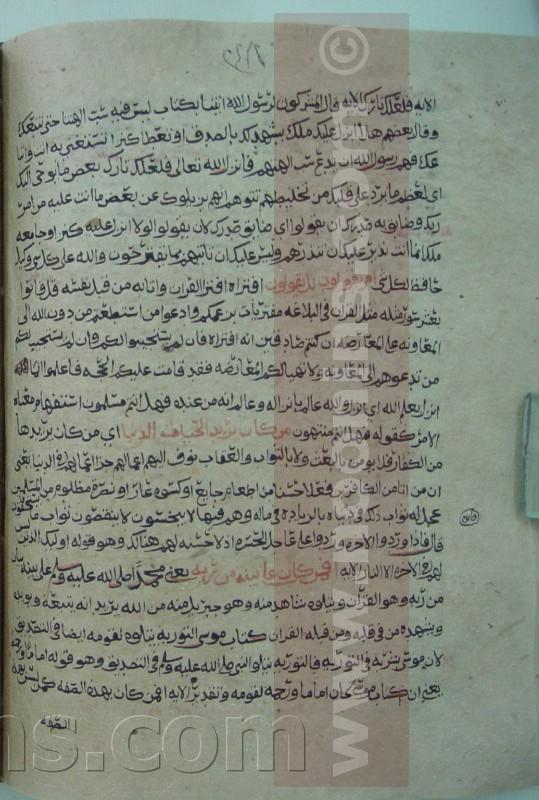 الايه فلعلك تارك الايه قال المشركون لرسول الله ايتنا بكتاب ليس فيه سب الهتنا حتى نتبعك
وقال بعضهم هلا انزل عليك ملك يشهد لك بالصدق او تعطا كنزا تستغني به انت
فهم رسول الله ان يدع سب الهتهم فانزل الله تعالى فلعلك تارك بعض ما يوحى اليك
اي لعظم ما يرد على قلبك من تخليطهم تتوهم انهم يزيلوك عن بعض ما انت عليه من امر
ربك وضايق به صدرك ان يقولوا اي ضايق صدرك لان يقولوا لولا انزل عليه كنز او جا معه
ملك انما انت نذير عليك ان تنذرهم وليس عليك ان تاتيهم بما يقترحون والله على كل شي وكيل
حافظ لكل شي ام يقولون بل يقولون افتراه افترا القران واتا به من قبل نفسه قل فاتوا
بعشر سور مثله مثل القران في البلاغه مفتريات بزعمكم وادعوا من استطعتم من دون الله الى
المعاونه على المعارضه ان كنتم صادقين انه افتراه فان لم يستجيبوا لكم فان لم يستجيب لكم
من تدعوهم الى المعاونه ولا تهيا لكم المعارضه فقد قامت عليكم الحجه فاعلموا انما
انزل بعلم الله اي انزل والله عالم بانزاله وعالم انه من عنده فهل انتم مسلمون استفهام معناه
الامر كقوله فهل انتم منتهون من كان يريد الحياه الدنيا اي من كان يريدها
من الكفار فلا يومن بالبعث ولا بالثواب والعقاب نوف اليهم اعمالهم جزا اعمالهم في الدنيا يعني
ان من اتا من الكافرين فعلا حسنا من اطعام جايع او كسوه عار او نصرة مظلوم من المسلمين
عجل له ثواب ذلك في دنياه بالزياده في ماله وهم فيها لا يبخسون لا ينقصون ثواب ما يستحقون
فاذا وردوا الاخره وردوا على عاجل الحسره اذ لا حسنه لهم هنالك وهو قوله اوليك الذين ليس
لهم في الاخره الا النار الايه افمن كان على بينه من ربه يعني محمدا صلى الله عليه وسلم على بينه
من ربه وهو القران ويتلوه شاهد منه وهو جبريل منه من الله يريد انه يتبعه ويويده
ويشهده ومن قبله ومن قبل القران كتاب موسى التوريه يتلوه لقومه ايضا في التصديق
لان موسى بشر به في التوريه فالتوريه تتلو النبي صلى الله عليه وسلم في التصديق وهو قوله اماما ورحمه
يعني ان كتاب موسى كان اماما ورحمه لقومه وتقدير الايه افمن كان بهذه الصفه كمن ليس بهذه
الصفه
www.
ns.com
©